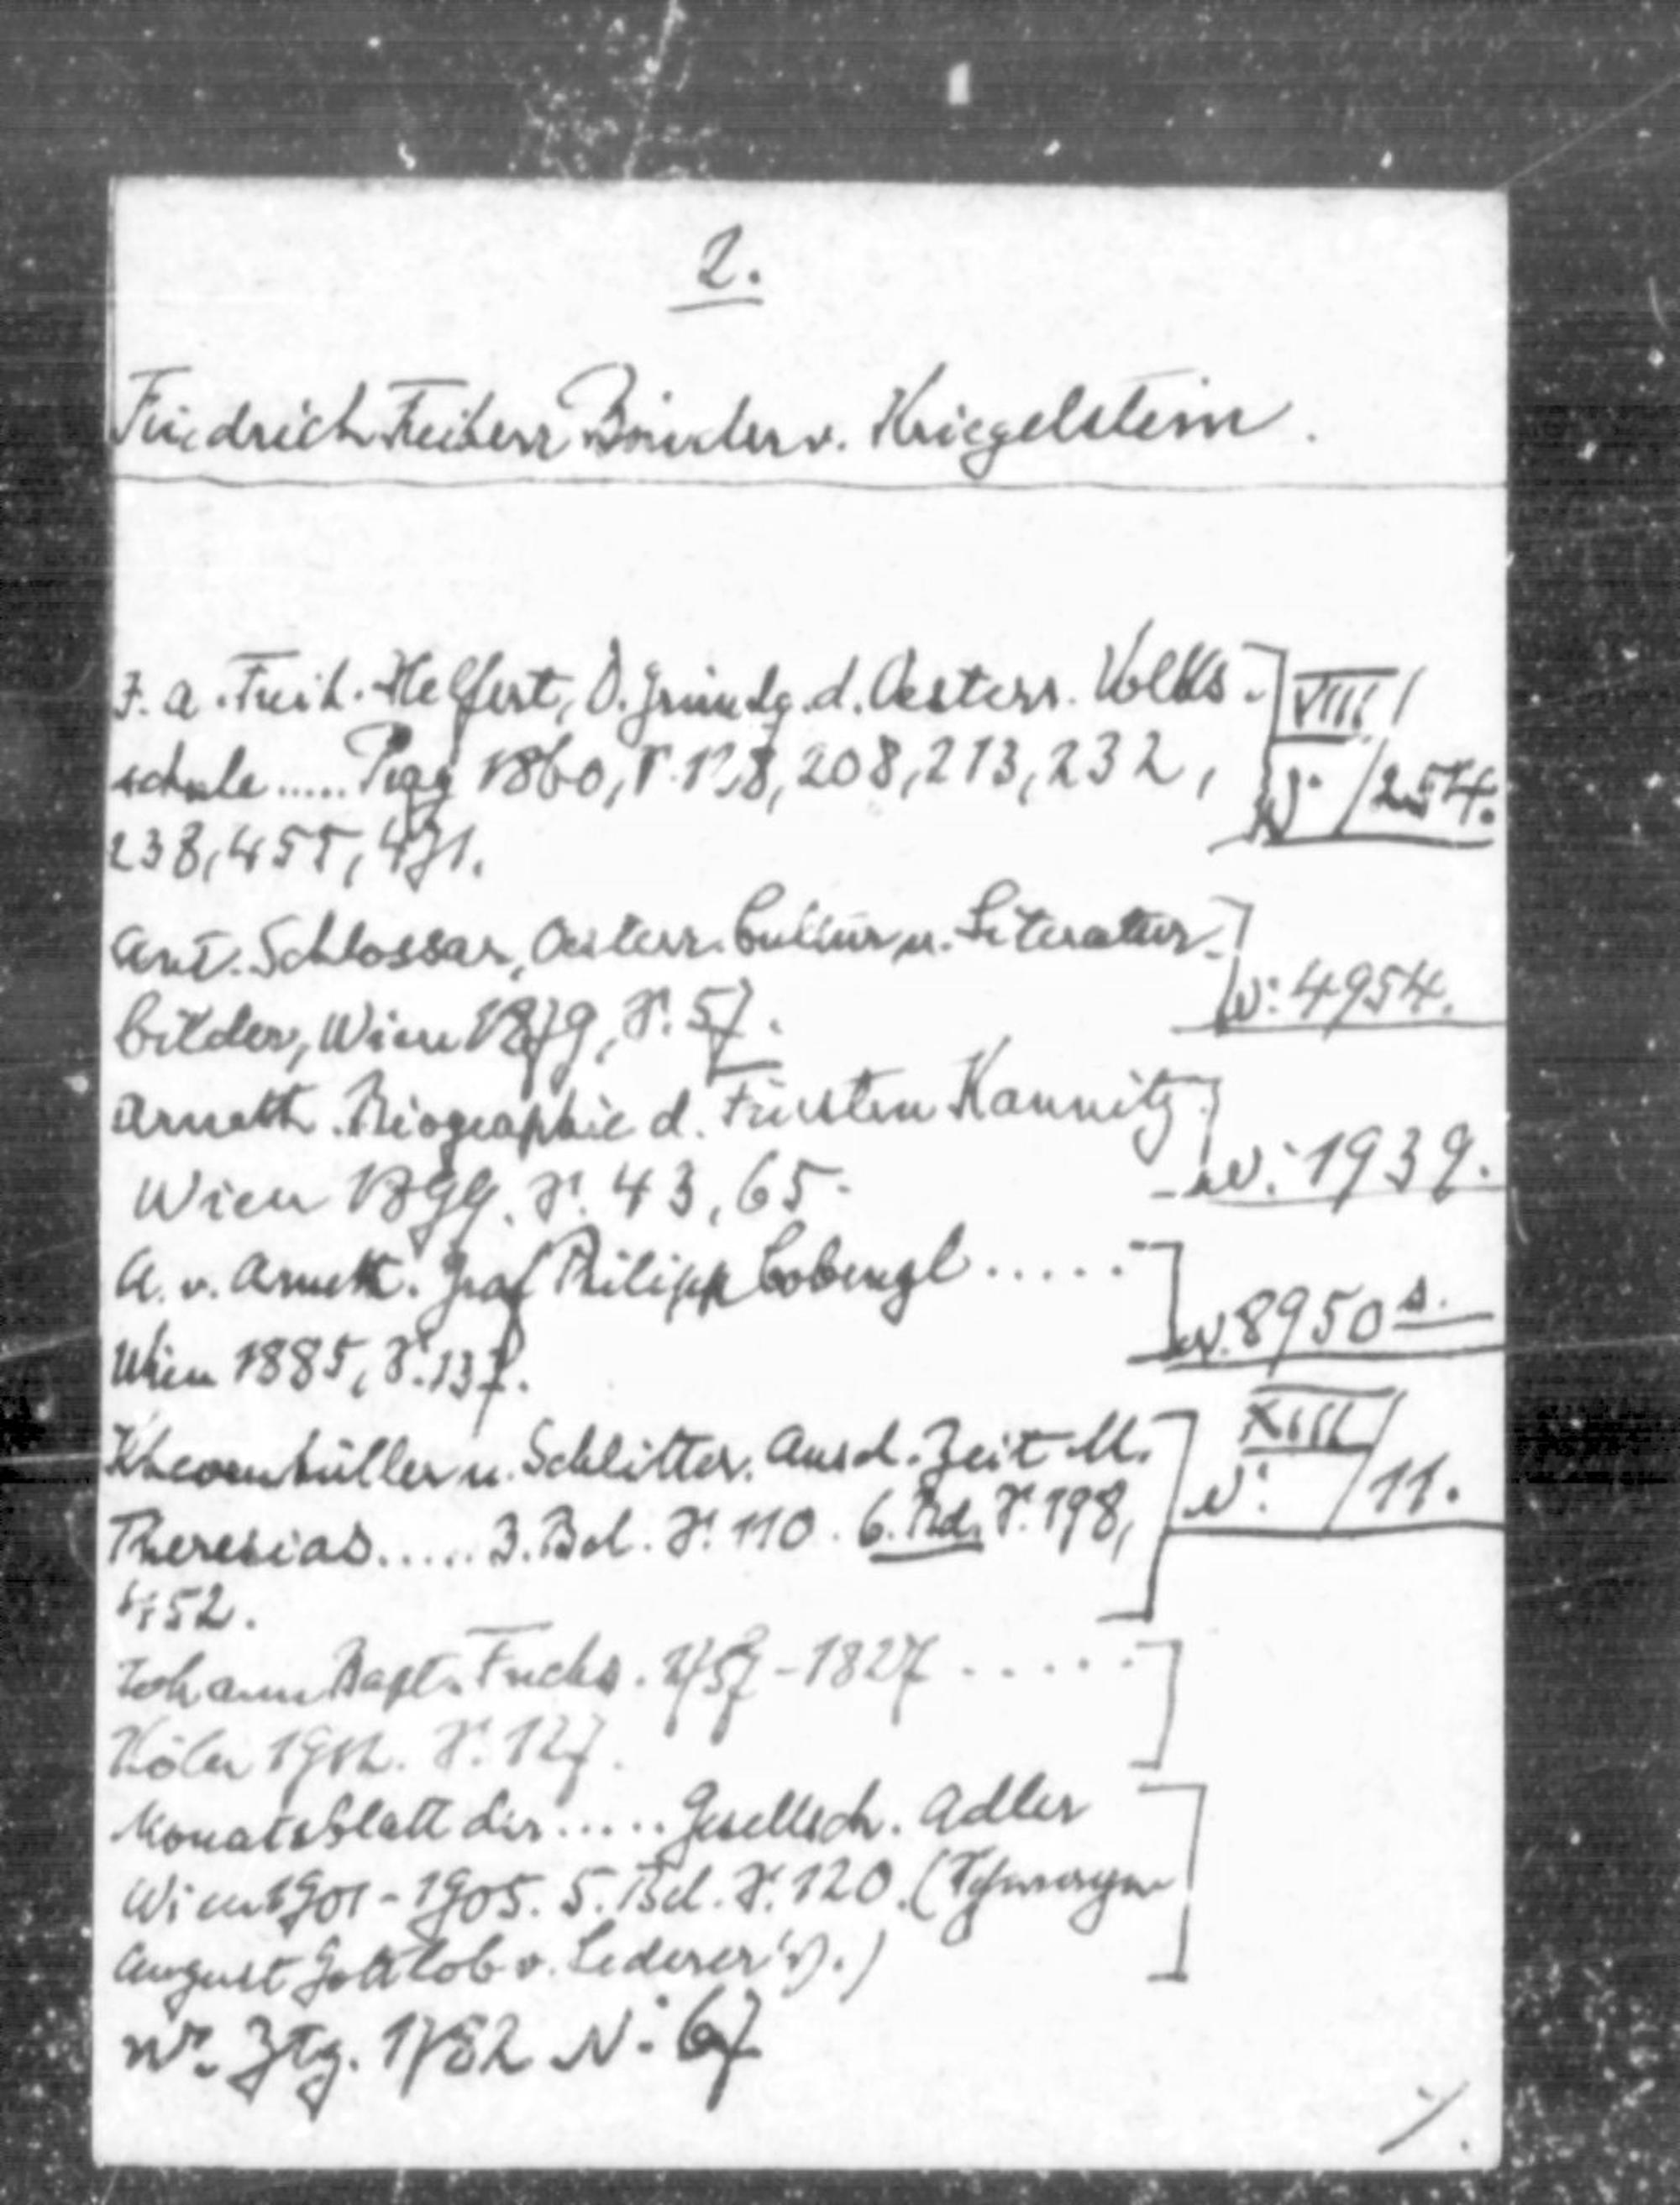 2.
Friedrich Freiherr Binder v. Kriegelstein.
J. A. Freih. Helfert, D. Gründg. d. Oesterr. Volks- VIII /
schule ..... Prag 1860, S. 128, 208, 213, 232, N: / 254.
238, 455, 471.
Ant. Schlossar, Oesterr. Cultur u. Literatur-
bilder, Wien 1879, S. 57. N: 4954.
Arneth. Biographie d. Fürsten Kaunitz
Wien 1899. S. 43, 65. N: 1939.
A. v. Arneth. Graf Philipp Cobenzl .....
Wien 1885, S. 137. N. 8950 s.
Khevenhüller u. Schlitter. Aus d. Zeit M. XIII /
Theresias ..... 3. Bd. S. 110. 6. Bd. S. 198, N: / 11.
452.
Johann Bapt. Fuchs. 1757-1827 .....
Köln 1912. S. 127.
Monatsblatt der ..... Gesellsch. Adler
Wien 1901-1905. 5. Bd. S. 120. (
August Gottlob v. Lederer's.)
Wr. Ztg. 1782 N: 67